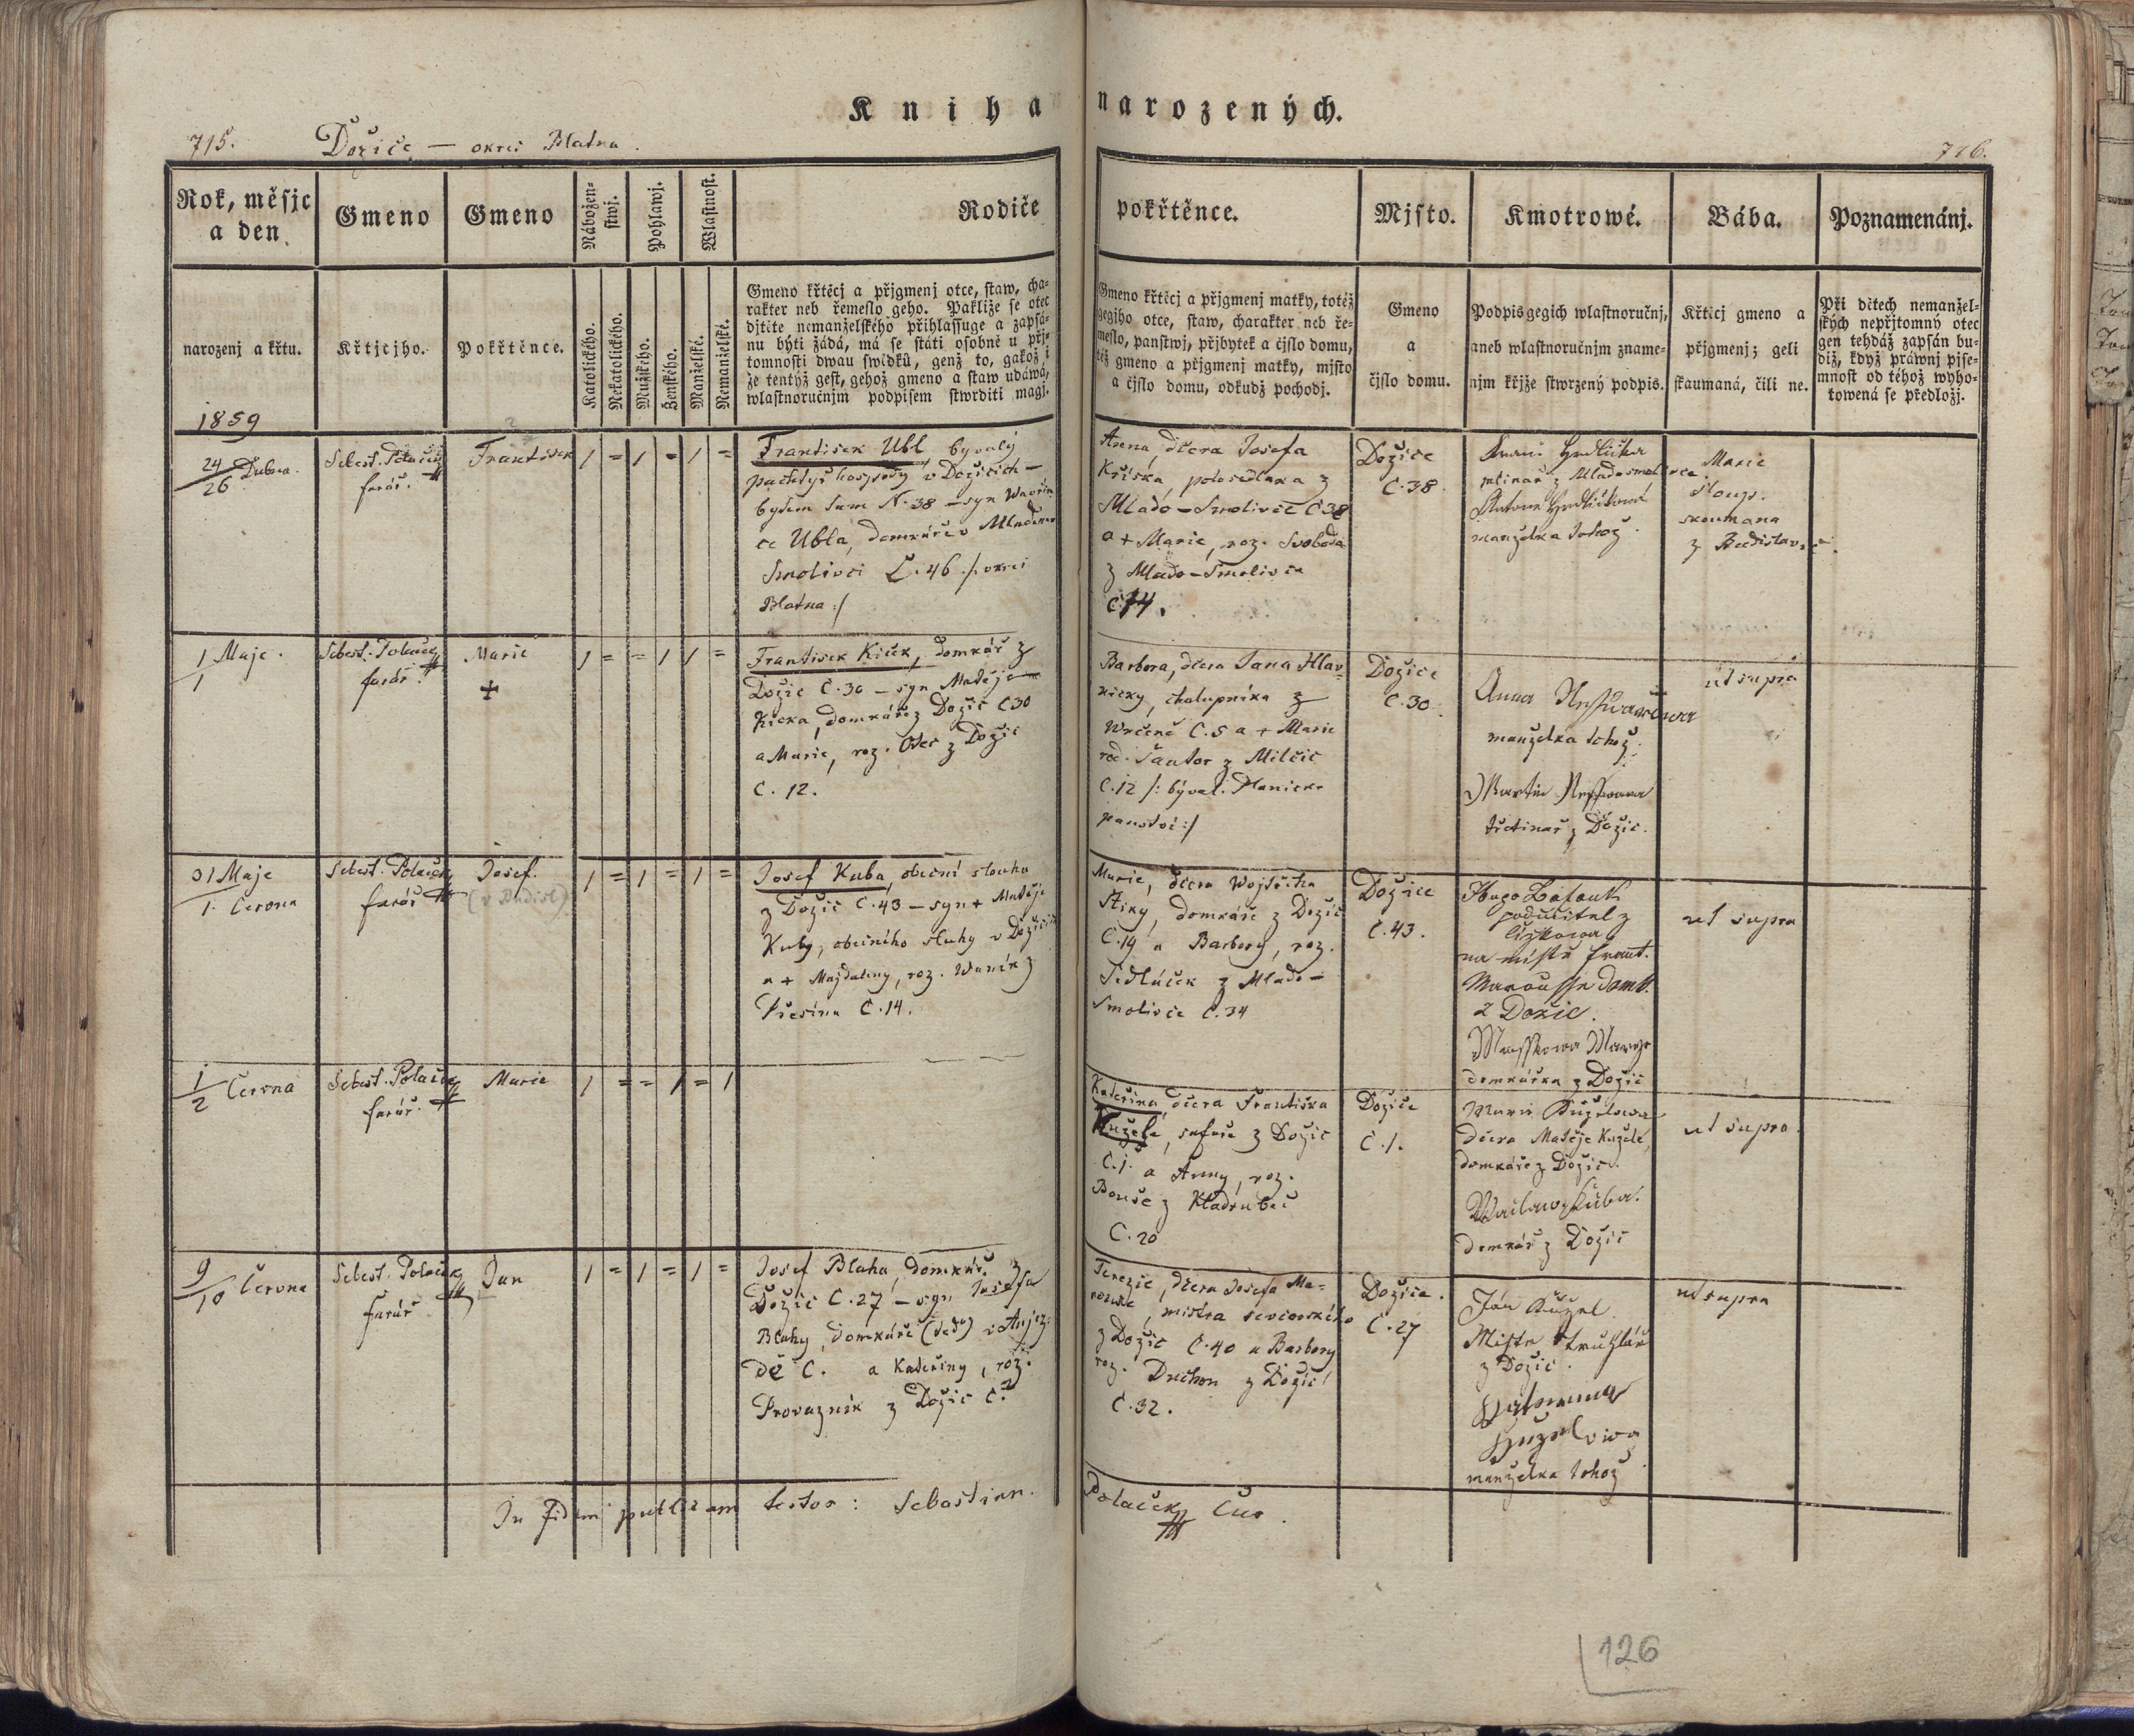 Kniha narozených.
715. Dožice — okres Blatna.
716.
Rok, měsjc
a den
Gmeno
Gmeno
Nábožen-
stwj.
Pohlawj.
Wlastnost.
Rodiče
pokřtěnce.
Mjsto.
Kmotrowé.
Bába.
Poznamenánj.
narozenj a křtu.
Křtjcjho.
Pokřtěnce.
Katolického.
Nekatolického.
Mužského.
Ženského.
Manželské.
Nemanželské.
Gmeno křtěcj a přjgmenj otce, staw, cha-
rakter neb řemeslo geho. Pakliže se otec
djtěte nemanželského přihlassuge a zapsá-
nu býti žádá, má se státi osobně u přj-
tomnosti dwau swědků, genž to, gakož i
že tentýž gest, gehož gmeno a staw udáwá,
wlastnoručnjm podpisem stwrditi magj.
Gmeno křtěcj a přjgmenj matky, totéž
gegjho otce, staw, charakter neb ře-
meslo, panstwj, přjbytek a čjslo domu,
též gmeno a přjgmenj matky, mjsto
a čjslo domu, odkudž pochodj.
Gmeno
a
čjslo domu.
Podpis gegich wlastnoručnj,
aneb wlastnoručnjm zname-
njm křjže stwrzený podpis.
Křticj gmeno a
přjgmenj; geli
skaumaná, čili ne.
Při dětech nemanžel-
ských nepřjtomný otec
gen tehdáž zapsán bu-
diž, když práwnj pjse-
mnost od téhož wyho-
towená se předložj.
1859
24/26 Dubna.
Sebest. Polaček
farář.
František
1 = 1 = 1 =
František Ubl, byvalý
pachtýř hospody v Dožicích —
bytem tam N. 38 — syn Wavřin
ce Ubla, domkáře v Mladem
Smolivci Č. 46 /: okres
Blatna :/
Anna, dcera Josefa
Kříska, polosedlaka z
Mlado-Smolivce Č 38
a + Marie, roz. Svoboda
z Mlado-Smolivce
Č 14.
Dožice
Č. 38
Hrdlička
mlinař z Mladosmolivce
Hrdličková
manželka tohož.
Marie
Sloup.
skoumana
z Budislavi
1/1 Maje.
Sebest. Polaček
farář.
Marie
+
1 = = 1 1 =
František Kiček, domkář z
Dožic Č. 30 — syn Matěje
Kička, domkáře z Dožic Č 30
a Marie, roz. z Dožic
Č. 12.
Barbora, dcera Jana Hlav-
ničky, chalupníka z
Wrčeně Č. 5 a + Marie
roz. Šantor z Milčic
Č. 12 /: býval. Planicke
panství :/
Dožice
Č. 30
Anna
manželka tohož.
Martin
třetinař z Dožic.
ut supra
31 Maje
1. Června
Sebest. Polaček
farář
Josef.
1 = 1 = 1 =
Josef Kuba, obecní slouha
z Dožic Č. 43 — syn + Matěje
Kuby, obecního sluhy v Dožicích
a + Majdaleny, roz. Waník z
Přešína Č. 14.
Marie, dcera Wojtěcha
Štiky, domkáře z Dožic
Č. 19 a Barbory, roz.
Sedláček z Mlado-
Smolivce Č. 34
Dožice
Č. 43.
Hugo
podučitel z
na místě Frant.
domk.
z Dožic.
domkářka z Dožic
ut supra
1/2 Června
Sebest. Polaček
farář.
Marie
1 = = 1 = 1
Kateřina dcera Františka
Kužele, šafáře z Dožic
Č. 1. a Anny, roz.
Bouše z Kladrubec
Č. 20
Dožice
Č. 1.
Marie Kuželowa
dcera Matěje Kužele,
domkáře z Dožic.
Wacław Kuba.
domkář z Dožic
ut supra.
9/10 Června
Sebest. Polaček
farář
Jan
1 = 1 = 1 =
Josef Blaha, domkář z
Dožic Č. 27 — syn Josefa
Blahy, domkáře (teď) v Aujez-
dě Č. a Kateřiny, roz.
Provazník z Dožic Č. ?
Terezie, dcera Josefa Ma-
rouše, mistra sevcovského
z Dožic Č. 40 a Barbory
roz. Duchon z Dožic
Č. 32.
Dožice.
Č. 27
Ján Kužel
Mistr truhlář
z Dožic.
manželka tohož
ut supra
In Fidem publicam testor: Sebastian. Polaček Cur.
126